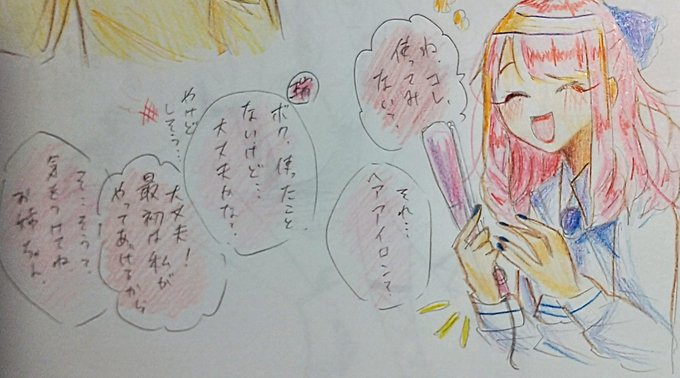 ね、コレ、
使ってみ
ない?
それ…
ヘアアイロンて、
瑞
ボク、使ったこと
ないけど…
大丈夫かな?
やけど
しそう…
大丈夫!
最初は私が
やってあげるから
そ…そう?、
気をつけてね
お姉ちゃん